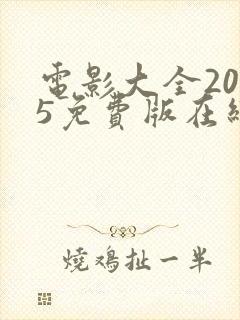 電影大全20
5免費版在線
燒鸡扯一半